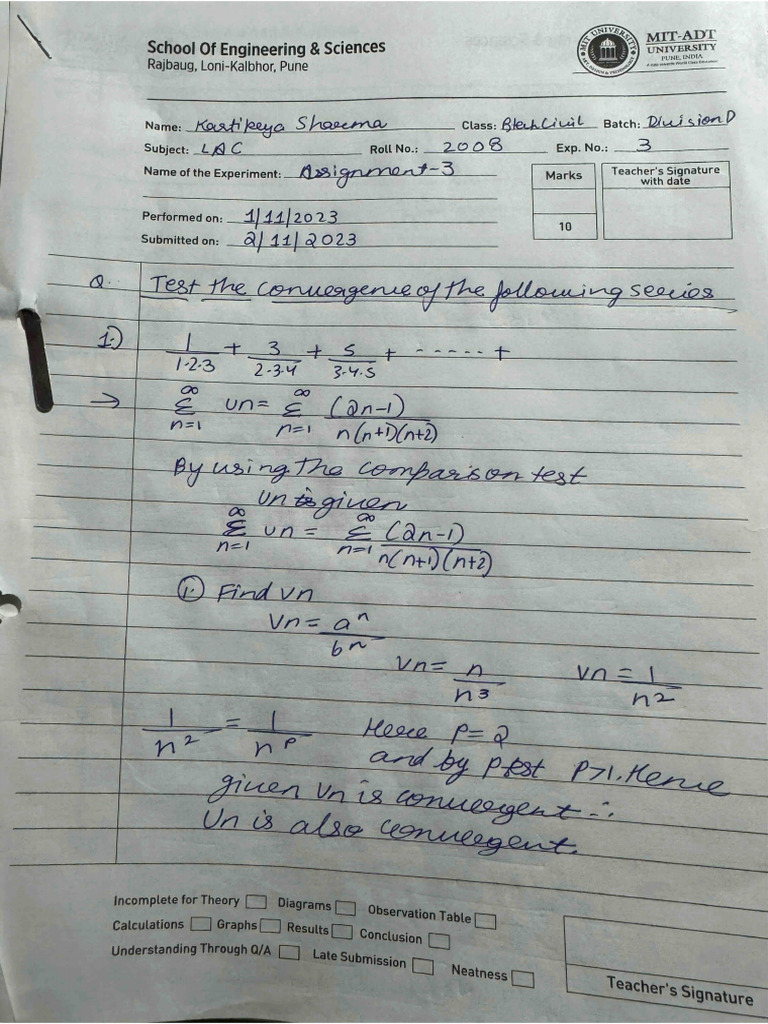 School Of Engineering & Sciences
Rajbaug, Loni-Kalbhor, Pune
MIT-ADT
UNIVERSITY
PUNE, INDIA
Name: Kartikeya Sharma Class: Btech Civil Batch: Division D
Subject: LAC Roll No.: 2008 Exp. No.: 3
Name of the Experiment: Assignment-3
Marks
Teacher's Signature
with date
10
Performed on: 1/11/2023
Submitted on: 2/11/2023
Q. Test the convergence of the following series
1.) 1/1·2·3 + 3/2·3·4 + 5/3·4·5 + ------ +
→ ∞Σn=1 un = ∞Σn=1 (2n-1)/n(n+1)(n+2)
By using the comparison test
un is given
∞Σn=1 un = ∞Σn=1 (2n-1)/n(n+1)(n+2)
① Find vn
Vn = a^n/b^n
Vn = n/n³ Vn = 1/n²
1/n² = 1/n^p Here P = 2
and by P test P>1. Hence
given Vn is convergent ∴
Un is also convergent.
Incomplete for Theory Diagrams Observation Table
Calculations Graphs Results Conclusion
Understanding Through Q/A Late Submission Neatness
Teacher's Signature